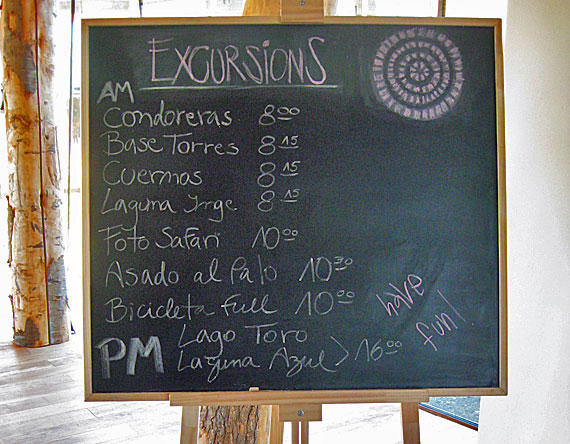 EXCURSIONS
AM
Condoreras 8 00
Base Torres 8 15
Cuernos 8 15
Laguna Inge 8 15
Foto Safari 10 00
Asado al Palo 10 30
Bicicleta full 10 00
have fun!
PM Lago Toro
Laguna Azul > 16 00